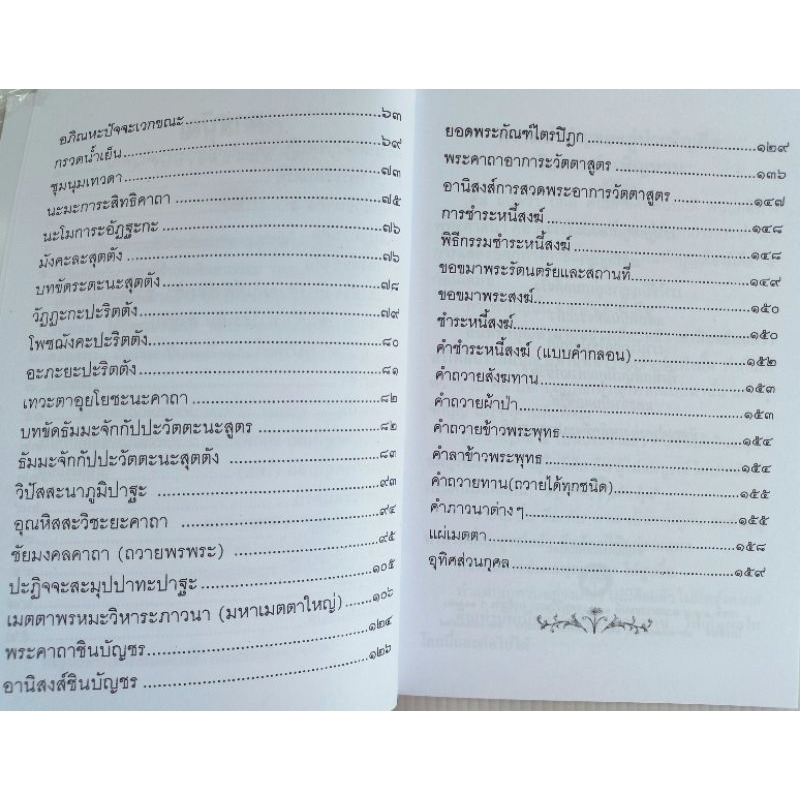 อภิณหะปัจจะเวกขณะ ๖๓
กรวดน้ำเย็น ๖๙
ชุมนุมเทวดา ๗๓
นะมะการะสิทธิคาถา ๗๕
นะโมการะอัฏฐะกะ ๗๖
มังคะละสุตตัง ๗๖
บทขัดระตะนะสุตตัง ๗๘
วัฏฏะกะปะริตตัง ๗๙
โพชฌังคะปะริตตัง ๘๐
อะภะยะปะริตตัง ๘๑
เทวะตาอุยโยชะนะคาถา ๘๒
บทขัดธัมมะจักกัปปะวัตตะนะสูตร ๘๒
ธัมมะจักกัปปะวัตตะนะสุตตัง ๘๓
วิปัสสะนาภูมิปาฐะ ๙๓
อุณหิสสะวิชะยะคาถา ๙๔
ชัยมงคลคาถา (ถวายพรพระ) ๙๕
ปะฏิจจะสะมุปปาทะปาฐะ ๑๐๕
เมตตาพรหมะวิหาระภาวนา (มหาเมตตาใหญ่) ๑๐๖
พระคาถาชินบัญชร ๑๒๔
อานิสงส์ชินบัญชร ๑๒๖
ยอดพระกัณฑ์ไตรปิฎก ๑๒๙
พระคาถาอาการะวัตตาสูตร ๑๓๖
อานิสงส์การสวดพระอาการวัตตาสูตร ๑๔๗
การชำระหนี้สงฆ์ ๑๔๘
พิธีกรรมชำระหนี้สงฆ์ ๑๔๘
ขอขมาพระรัตนตรัยและสถานที่ ๑๔๙
ขอขมาพระสงฆ์ ๑๕๐
ชำระหนี้สงฆ์ ๑๕๐
คำชำระหนี้สงฆ์ (แบบคำกลอน) ๑๕๒
คำถวายสังฆทาน ๑๕๓
คำถวายผ้าป่า ๑๕๓
คำถวายข้าวพระพุทธ ๑๕๔
คำลาข้าวพระพุทธ ๑๕๔
คำถวายทาน(ถวายได้ทุกชนิด) ๑๕๕
คำภาวนาต่างๆ ๑๕๕
แผ่เมตตา ๑๕๘
อุทิศส่วนกุศล ๑๕๙